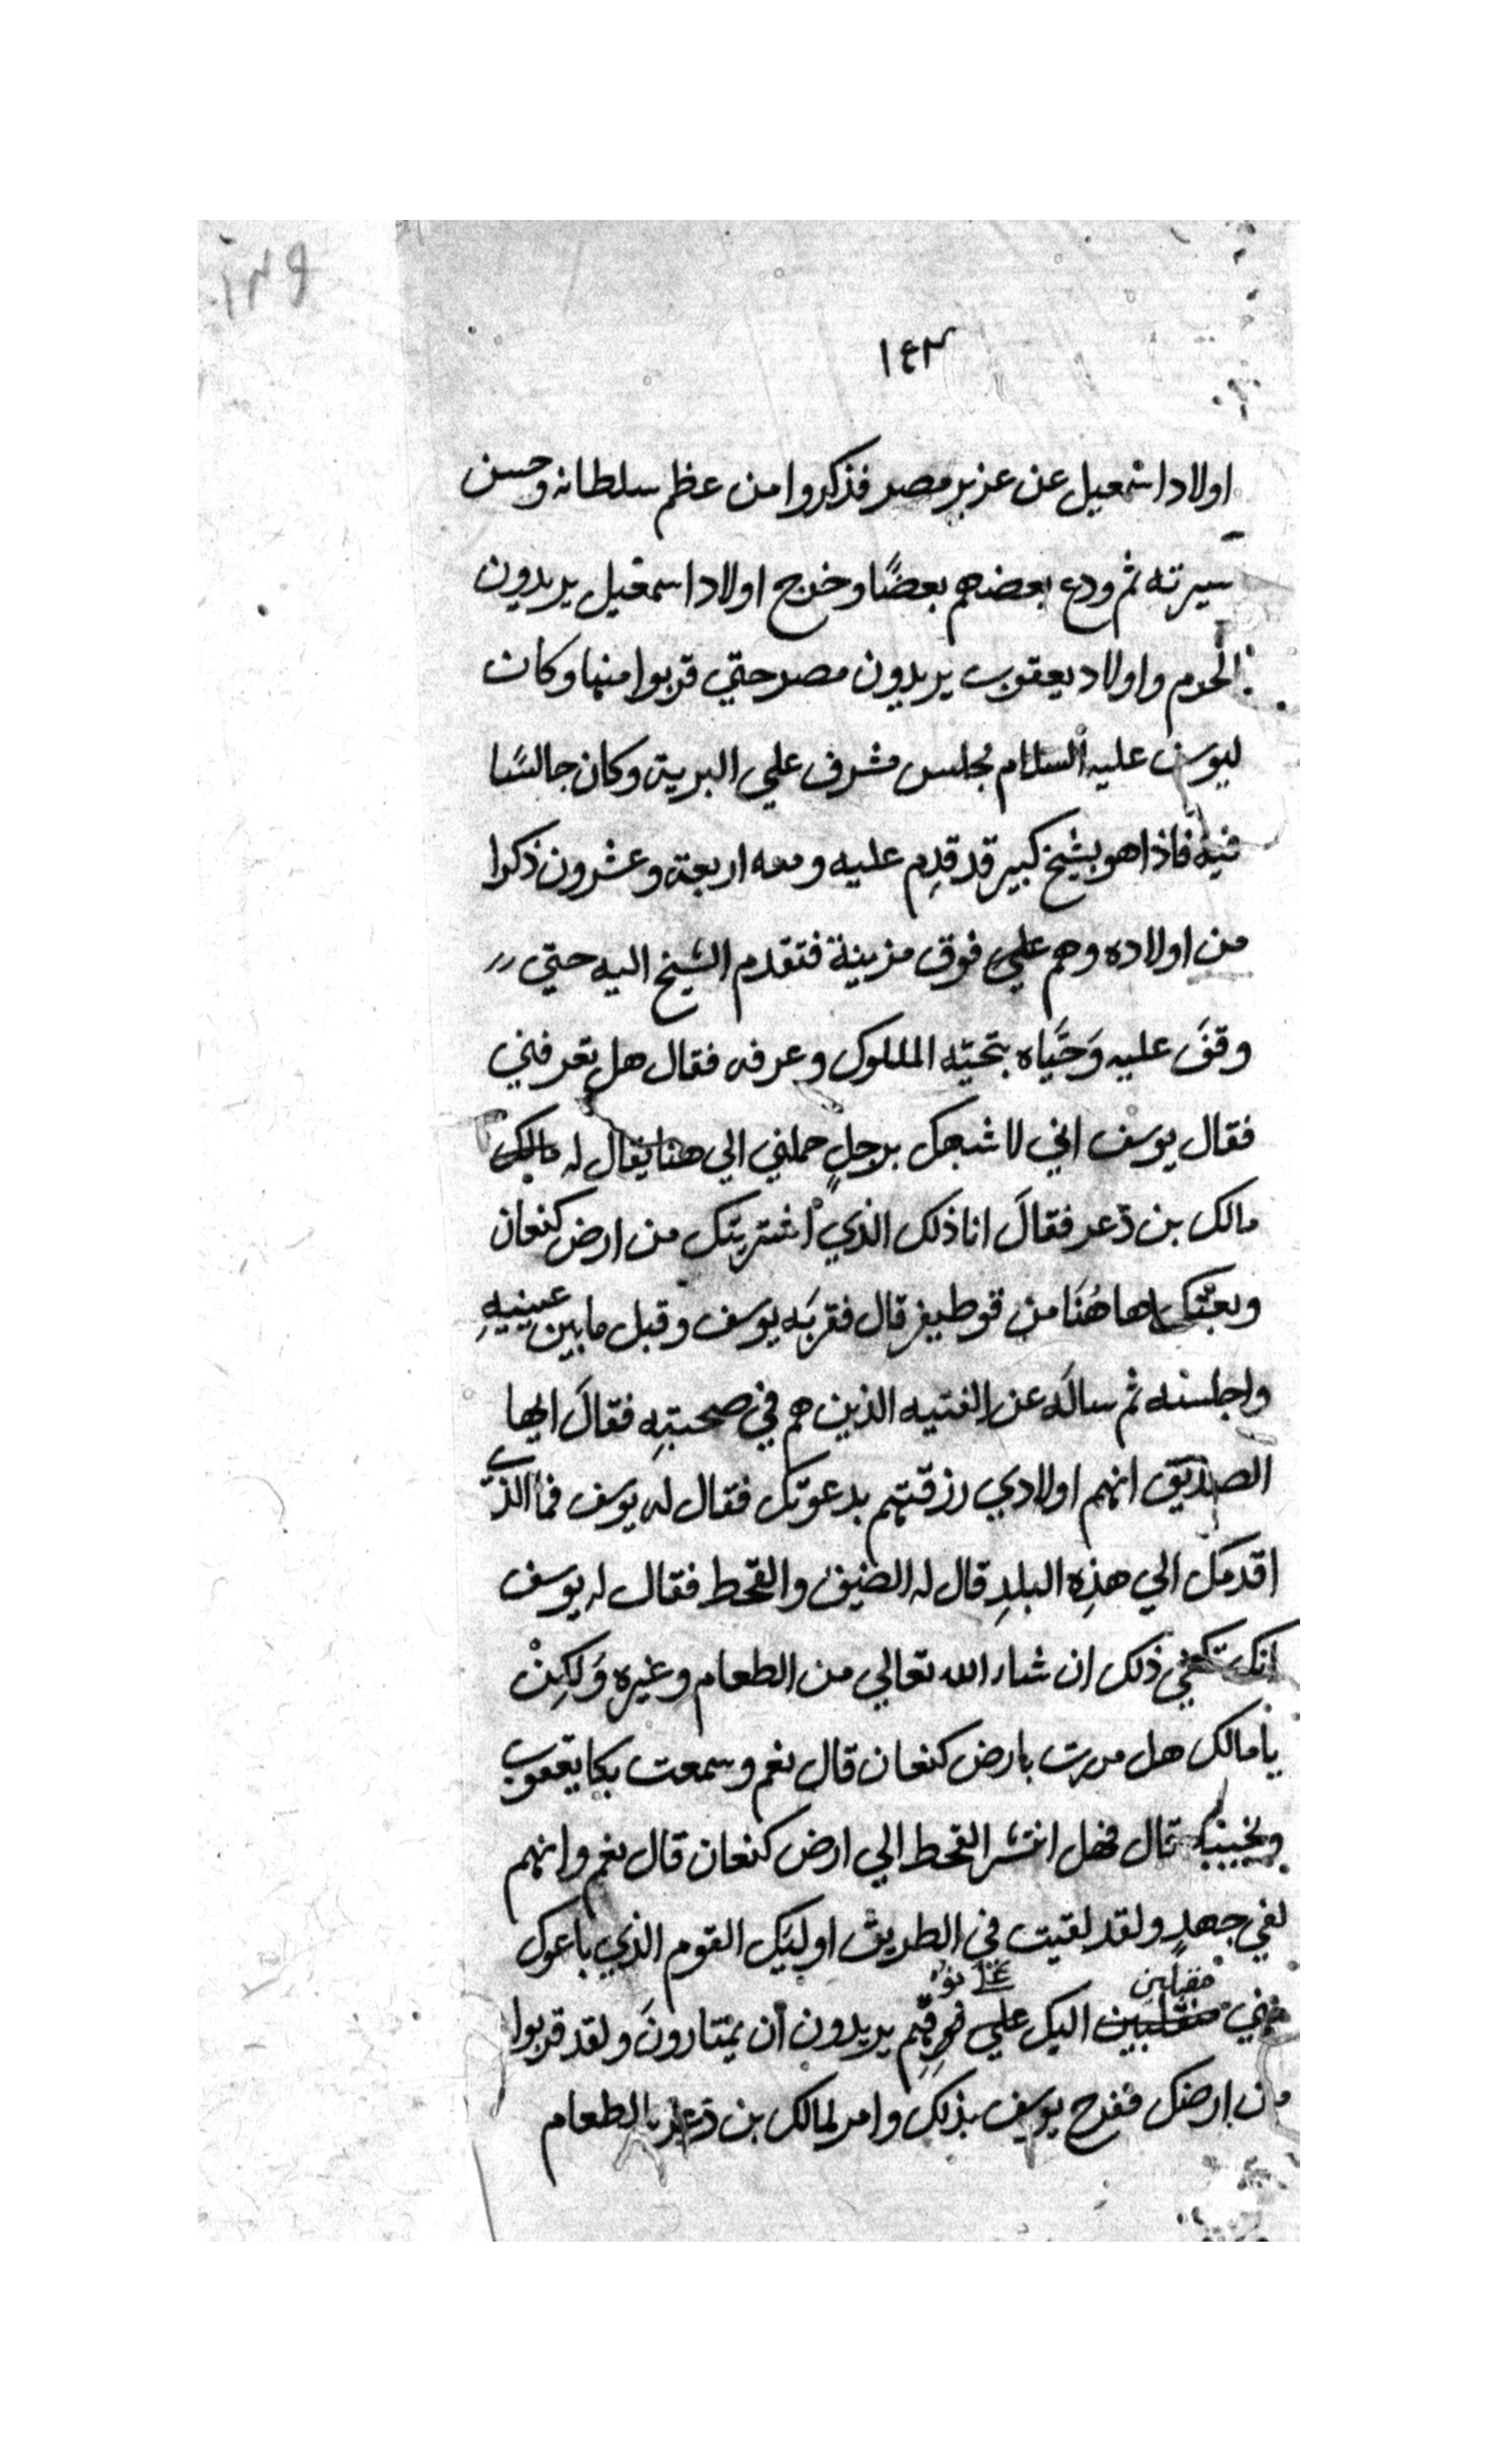 ١٤٣
اولاد اسمعيل عن عزيز مصر فذكروا من عظم سلطانه وحسن
سيرته ثم ودع بعضهم بعضًا وخرج اولاد اسمعيل يريدون
الحرم واولاد يعقوب يريدون مصر حتي قربوا منها وكان
ليوسف عليه السلام مجلس مشرف علي البرية وكان جالسًا
فيه فاذا هو بشيخ كبير قد قدِم عليه ومعه اربعة وعشرون ذكرا
من اولاده وهم علي فوق مزينة فتقدم الشيخ اليه حتي
وقفَ عليه وَحَيَّاه بتحيّه الملوك وعرفه فقال هل تعرفني
فقال يوسف اني لاشبهك برجلٍ حملني الي هنا يقال له
مالك بن ذعر فقالَ انا ذلك الذي اشتريتك من ارض كنعان
وبعتك هاهُنَا من قوطيفر قال فقربَه يوسف وقبل ما بين عينيهِ
واجلسه ثم سالَه عن الفتيه الذين هم في صحبتِه فقالَ ايها
الصديق انهم اولادي رزقتهم بدعوتك فقال له يوسف فما الذي
اقدمَك الي هذِه البلدِ قال له الضيق والقحط فقال له يوسف
انك تكفي ذلك ان شاء الله تعالي من الطعام وغيرهِ وَلكِنْ
يا مالك هل مررت بارض كنعان قال نعم وسمعت بكا يعقوب
ونحيبه قال فهل انتشر القحط الي ارض كنعان قال نعم وانهم
لفي جهدٍ ولقد لقيت في الطريق اوليك القوم الذي باعوك
مني مقبلين اليك علي يريدون أن يمتارونَ ولقد قربوا
من ارضك ففرح يوسف بذلك وامر لمالك بن ذعر بالطعام